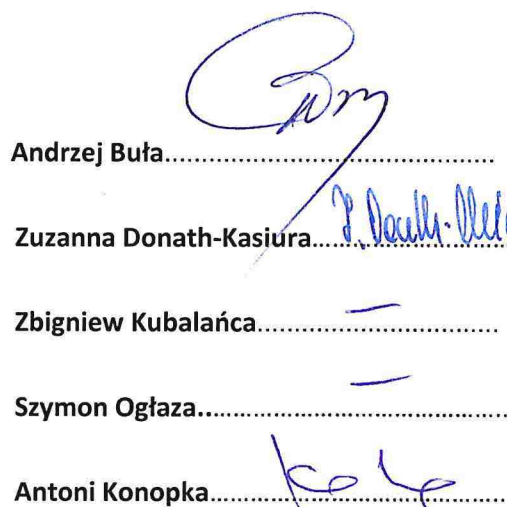 Andrzej Buła......................................................
Zuzanna Donath-Kasiura..................................
Zbigniew Kubalańca..........................................
Szymon Ogłaza..................................................
Antoni Konopka.................................................